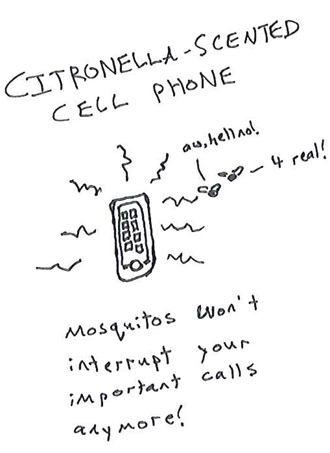 CITRONELLA-SCENTED
CELL PHONE
aw, hell no!
- 4 real!
Mosquitos won't
interrupt your
important calls
anymore!